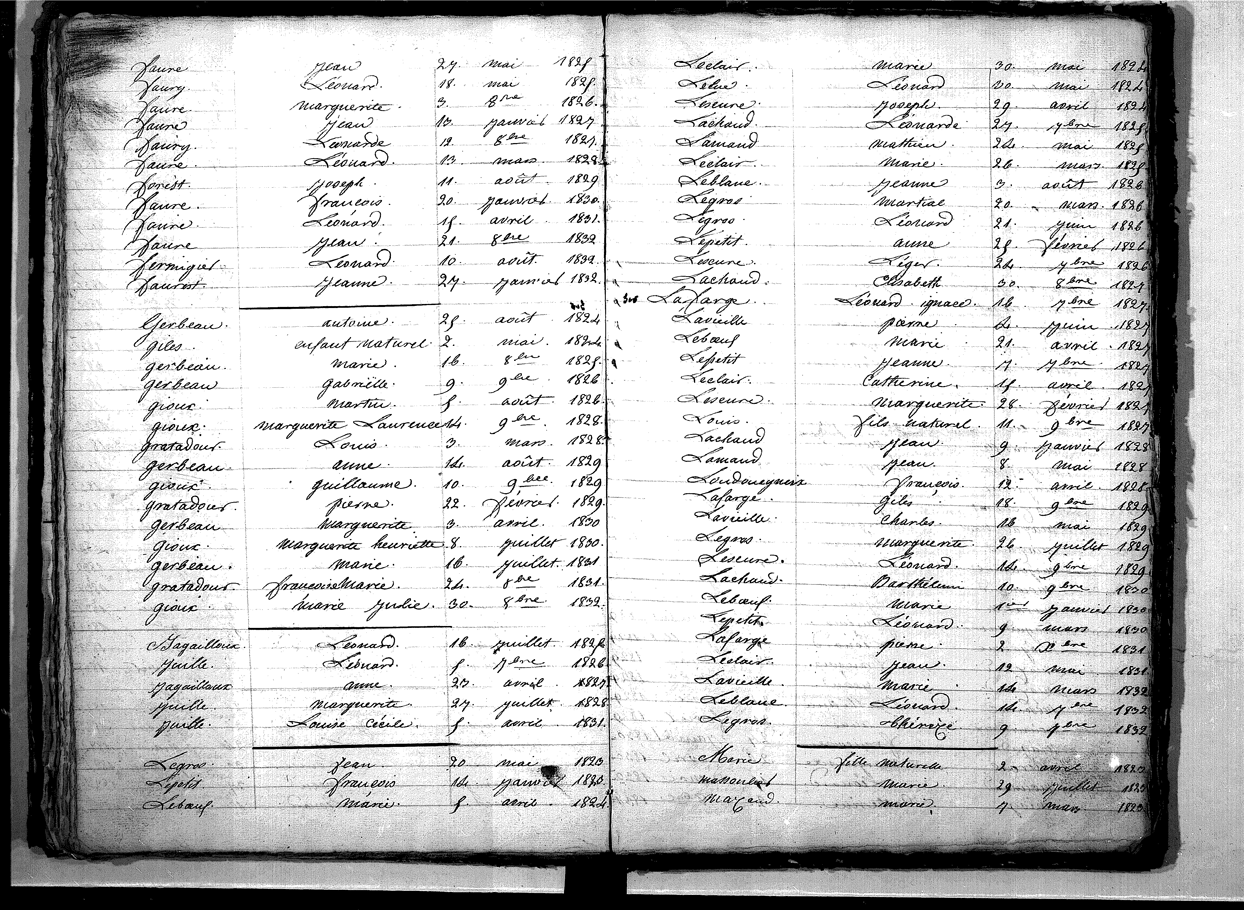 faure jean 27. mai 1825
faury Léonard. 18. mai 1825.
faure marguerite. 3. 8bre 1826.
faure jean 13. janvier 1827
faury. Léonarde 12. 8bre 1827.
faure. Léonard. 13. mars. 1828
forest joseph. 11. août. 1829
faure. françois. 20. janvier 1830.
faure. Léonard. 15. avril. 1831.
faure jean. 21. 8bre 1832
fermigier. Léonard. 10. août 1832.
faurest jeanne. 27. janvier 1832.
Gerbeau. antoine. 25. août. 1824
giles. enfant naturel. 2. mai. 1824
gerbeau. marie. 16. 8bre 1825.
gerbeau gabriëlle. 9. 9bre 1826
gioux. martin. 5. août 1826.
gioux. marguerite Laurence 14. 9bre 1828.
gratadour. Louis. 3. mars. 1828.
gerbeau. anne. 14. août. 1829
gioux. guillaume. 10. 9bre 1829
gratadour. pierre. 22. février 1829.
gerbeau. marguerite 3. avril. 1830
gioux. marguerite henriette. 8. juillet 1830.
gerbeau. marie. 16. juillet. 1831
gratadour. françoise Marie. 24. 8bre 1831.
gioux. marie julie. 30. 8bre 1832.
Jagailloux Léonard. 16. juillet 1826
juille. Léonard. 5. 7bre 1826
jagailloux anne. 23. avril. 1827
juille. marguerite 27. juillet. 1828
juille. Louise Cécile. 5. avril. 1831.
Legros. jean. 20. mai 1823
Lepetit françois 14. janvier 1823.
Lebœuf marie. 5. avril. 1824
Leclair. marie 30. mai 1824
Léonard 20. mai 1824
Lescure. joseph. 29. avril 1824
Lachaud. Léonarde 27. 7bre 1825
Lamaud mathieu 24. mai 1825
Leclair. marie. 26. mars. 1825
Leblanc. jeanne 3. août 1826
Legros. martial 20. mars. 1826
Legros. Léonard 21. juin 1826
Lepetit. anne 25 février 1826
Lescure. Léger. 24 7bre 1826
Lachaud. Elisabeth 30. 8bre 1827
Lafarge. Léonard ignace. 16. 7bre 1827
Lavieille pierre 4. juin 1827
Lebœuf marie 21. avril. 1827
Lepetit jeanne. 7. 7bre 1827
Leclair. Catherine. 15 avril. 1827
Lescure. marguerite. 28. février 1827
Louis. fils naturel. 11. 9bre 1827
Lachaud jean 9. janvier 1828
Lamaud jean. 8. mai 1828
françois. 12. avril. 1828
Lafarge. giles. 18. 9bre 1829
Lavieille. Charles. 16 mai 1829
Legros. marguerite. 26 juillet 1829
Lescure. Léonard. 14. 9bre 1829.
Lachaud. Barthélemi 10. 9bre 1830
Lebœuf. Marie 1er janvier 1830
Lepetit. Léonard. 9. mars 1830
Lafarge pierre. 2 1831
Leclair. jean. 12 mai 1831
Lavieille marie. 14. mars 1832
Leblanc. Léonard. 14. 7bre 1832
Legros. thérèze 9. 7bre 1832
Marie fille naturelle 2. avril 1823
marie. 29. juillet 1823
marie. 7. mars 1823.